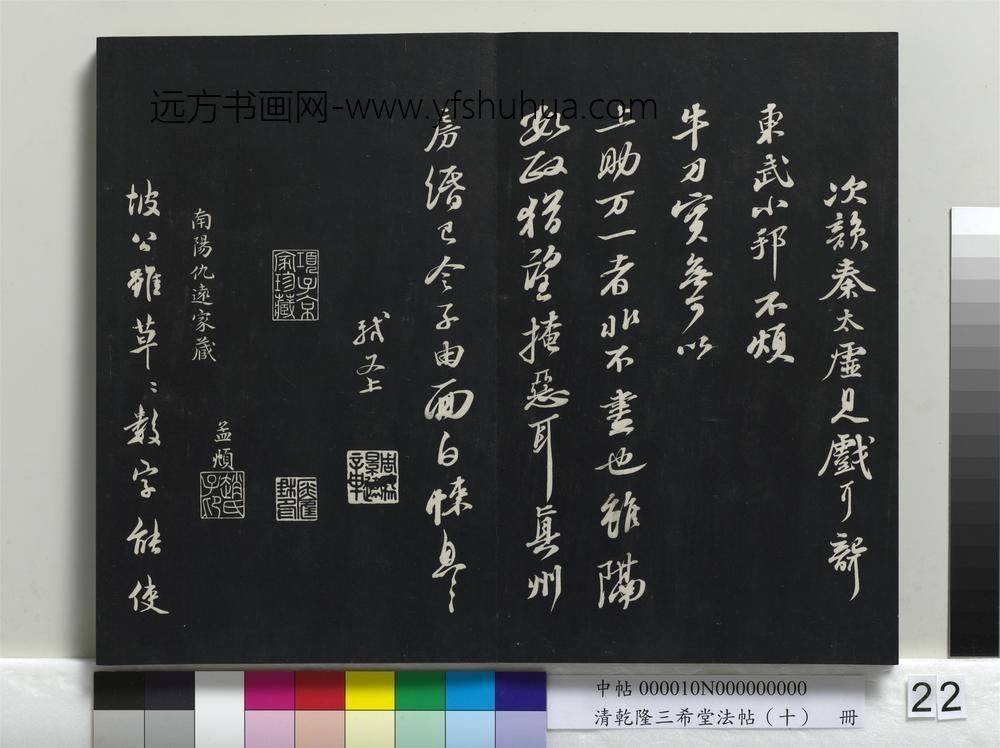 远方书画网-www.yfshuhua.com
次韻秦太虛見戲耳聾
東武小邦不煩
牛刀實無可以
上助万一者非不盡也雖隔
數政猶望掩惡耳真州
房緡已令子由面白悚息〻
軾又上
項子京家珍藏
南陽仇遠家藏
孟頫
趙氏子昂
坡公雖草〻數字能使
中帖 000010N000000000
清乾隆三希堂法帖（十） 冊
22